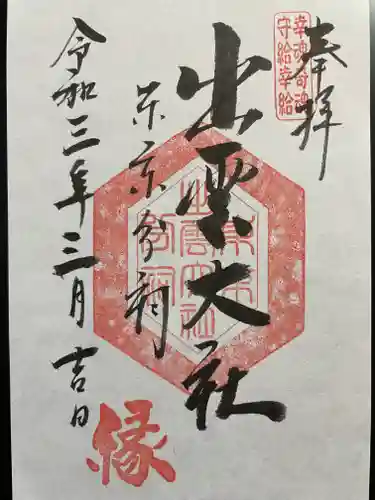 奉拝
幸魂奇魂
守給幸給
出雲大社
東京分祠
令和三年三月吉日
縁
出雲大社
東京分祠